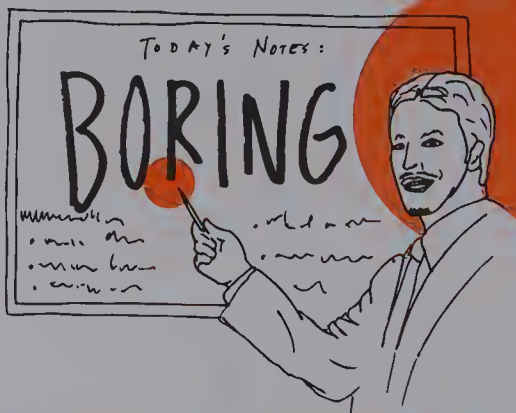 TODAY'S NOTES:
BORING